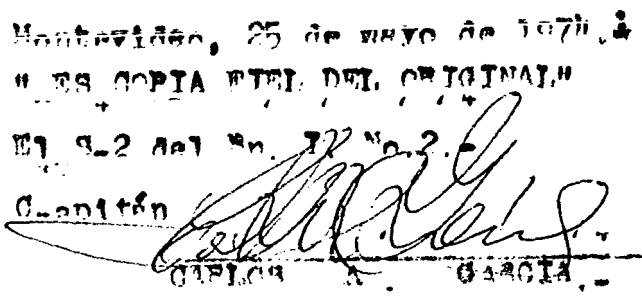 Montevideo, 25 de mayo de 1974.
" ES COPIA FIEL DEL ORIGINAL"
El S-2 del Bn. I. No.2.-
Capitán
CARLOS A. GARCIA.-